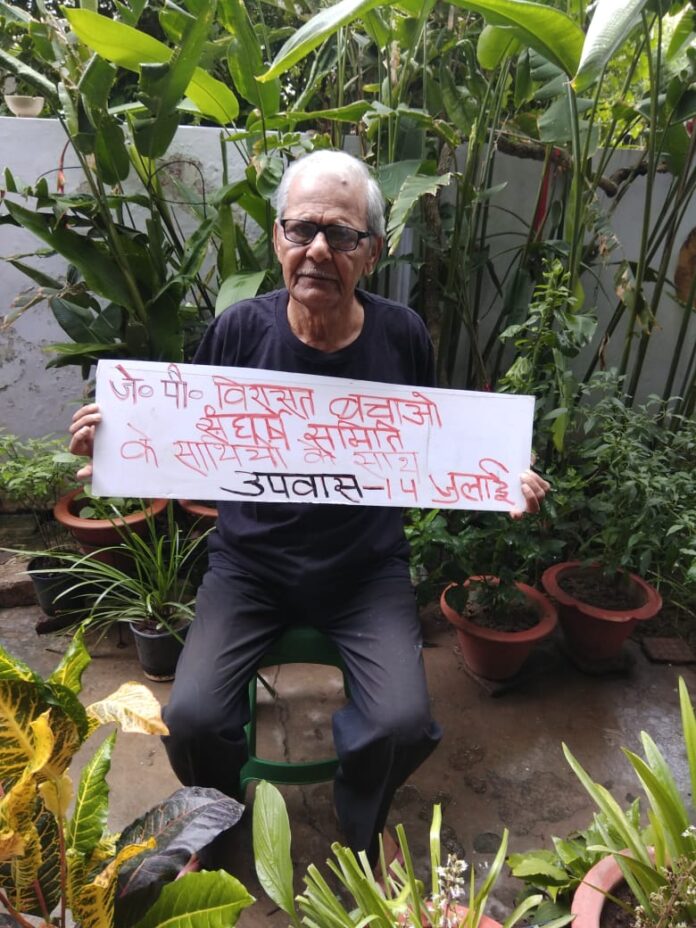 जे॰ पी॰ विरासत बचाओ
संघर्ष समिति
के साथियों के साथ
उपवास-14 जुलाई